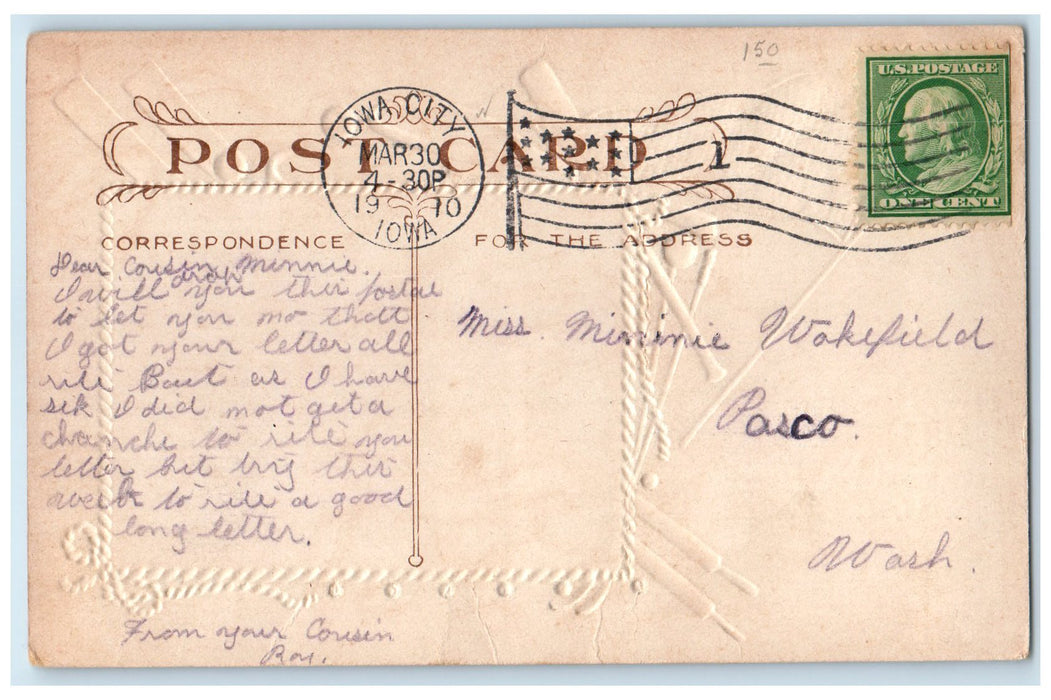 150
U.S. POSTAGE
ONE CENT
POST CARD
IOWA CITY
MAR 30
4-30P
1910
IOWA
1
CORRESPONDENCE
FOR THE ADDRESS
Dear Cousin Minnie.
I will drop you this postal
to let you no that
I got your letter all
rite But as I have
sik I did not get a
chanche to rite you
letter but try this
week to rite a good
long letter.
From your Cousin
Roy.
Miss. Minnie Wakefield
Pasco.
Wash.